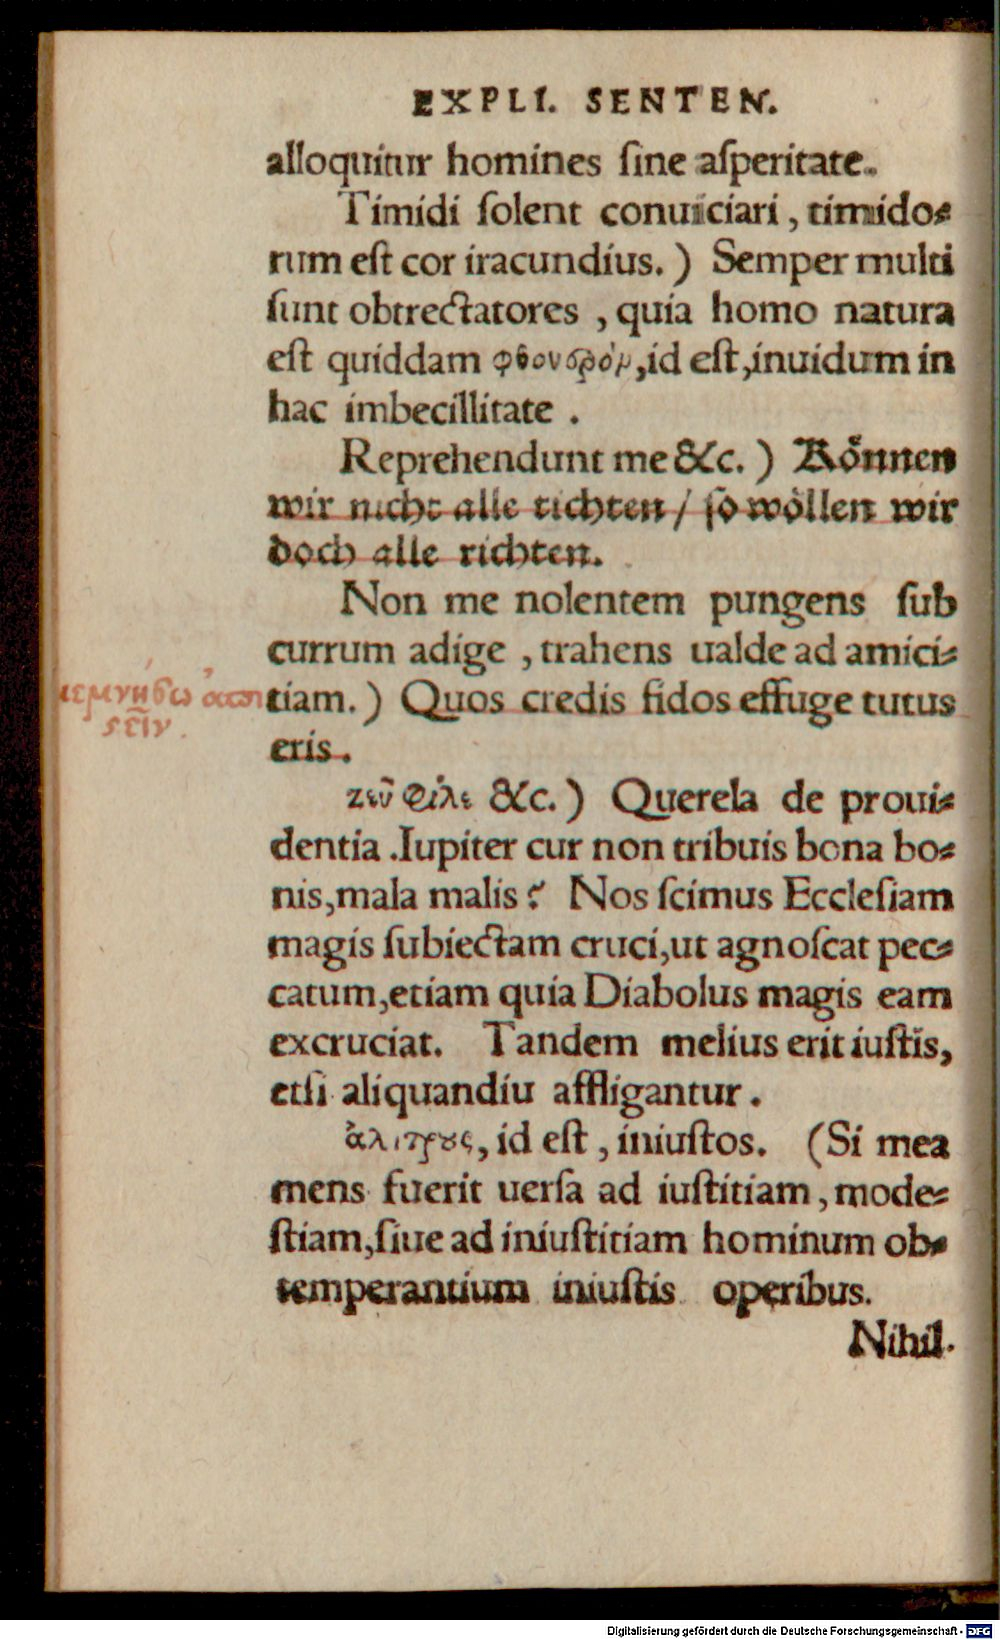 EXPLI. SENTEN.
alloquitur homines ſine aſperitate.
Timidi ſolent conuiciari, timido⸗
rum eſt cor iracundius.) Semper multi
ſunt obtrectatores, quia homo natura
eſt quiddam φθονερὸμ, id eſt, inuidum in
hac imbecillitate.
Reprehendunt me &c.) Koͤnnen
wir nicht alle tichten / ſo woͤllen wir
doch alle richten.
Non me nolentem pungens ſub
currum adige, trahens ualde ad amici⸗
tiam.) Quos credis fidos effuge tutus
eris.
ζεῦ φίλε &c.) Querela de proui⸗
dentia. Iupiter cur non tribuis bona bo⸗
nis, mala malis? Nos ſcimus Eccleſiam
magis ſubiectam cruci, ut agnoſcat pec⸗
catum, etiam quia Diabolus magis eam
excruciat. Tandem melius erit iuſtis,
etſi aliquandiu affligantur.
ἀλιτρους, id eſt, iniuſtos. (Si mea
mens fuerit uerſa ad iuſtitiam, mode⸗
ſtiam, ſiue ad iniuſtitiam hominum ob⸗
temperantium iniuſtis operibus.
Nihil.
Digitalisierung gefördert durch die Deutsche Forschungsgemeinschaft - DFG